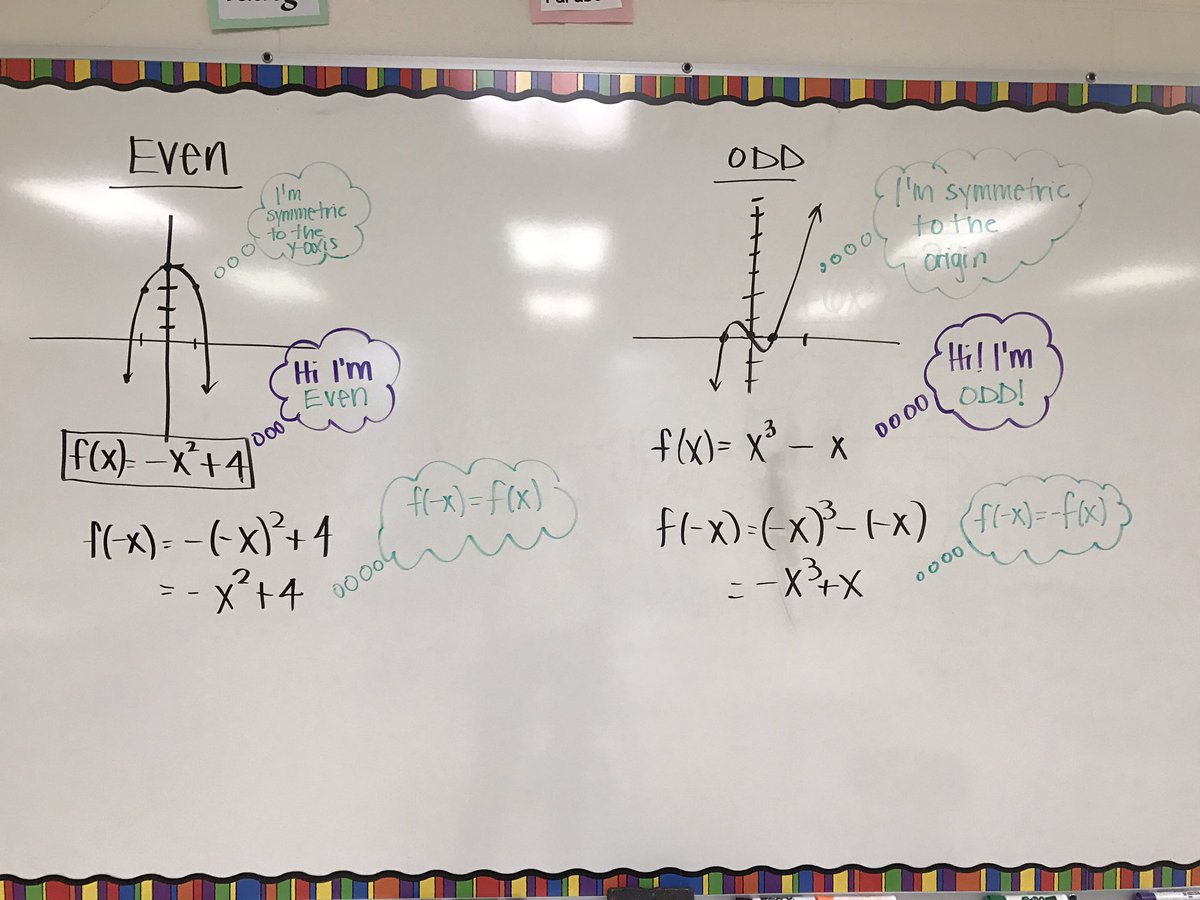 Even
I'm
symmetric
to the
y-axis
Hi I'm
Even
f(x)= -x²+4
f(-x)= -(-x)²+4
= -x²+4
f(-x)=f(x)
ODD
I'm symmetric
to the
origin
Hi! I'm
ODD!
f(x)= x³ - x
f(-x)=(-x)³-(-x)
= -x³+x
f(-x)=-f(x)